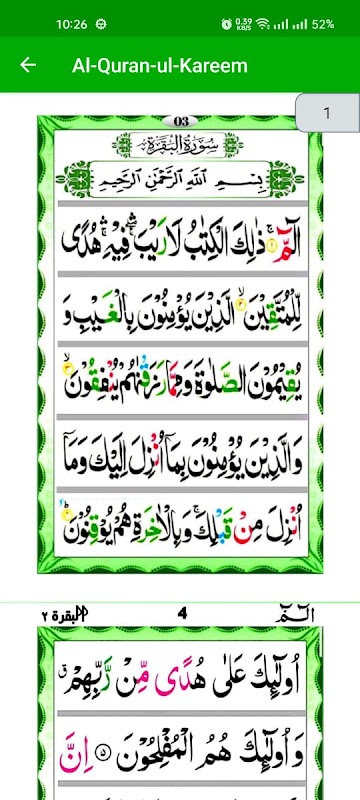 10:26
0.39 KB/S 52%
Al-Quran-ul-Kareem
1
03
سُوْرَةُ الْبَقَرَةِ
بِسْمِ اللّٰهِ الرَّحْمٰنِ الرَّحِيْمِ
الٓمّٓ ۚ ذٰلِكَ الْكِتٰبُ لَا رَيْبَ ۛ فِيْهِ ۛ هُدًى
لِّلْمُتَّقِيْنَ ۙ الَّذِيْنَ يُؤْمِنُوْنَ بِالْغَيْبِ وَ
يُقِيْمُوْنَ الصَّلٰوةَ وَمِمَّا رَزَقْنٰهُمْ يُنْفِقُوْنَ ۙ
وَالَّذِيْنَ يُؤْمِنُوْنَ بِمَآ اُنْزِلَ اِلَيْكَ وَمَآ
اُنْزِلَ مِنْ قَبْلِكَ ۚ وَبِالْاٰخِرَةِ هُمْ يُوْقِنُوْنَ ؕ
البقرة ٢ 4 الٓمّٓ
اُولٰٓئِكَ عَلٰى هُدًى مِّنْ رَّبِّهِمْ ۗ
وَاُولٰٓئِكَ هُمُ الْمُفْلِحُوْنَ ۵ اِنَّ